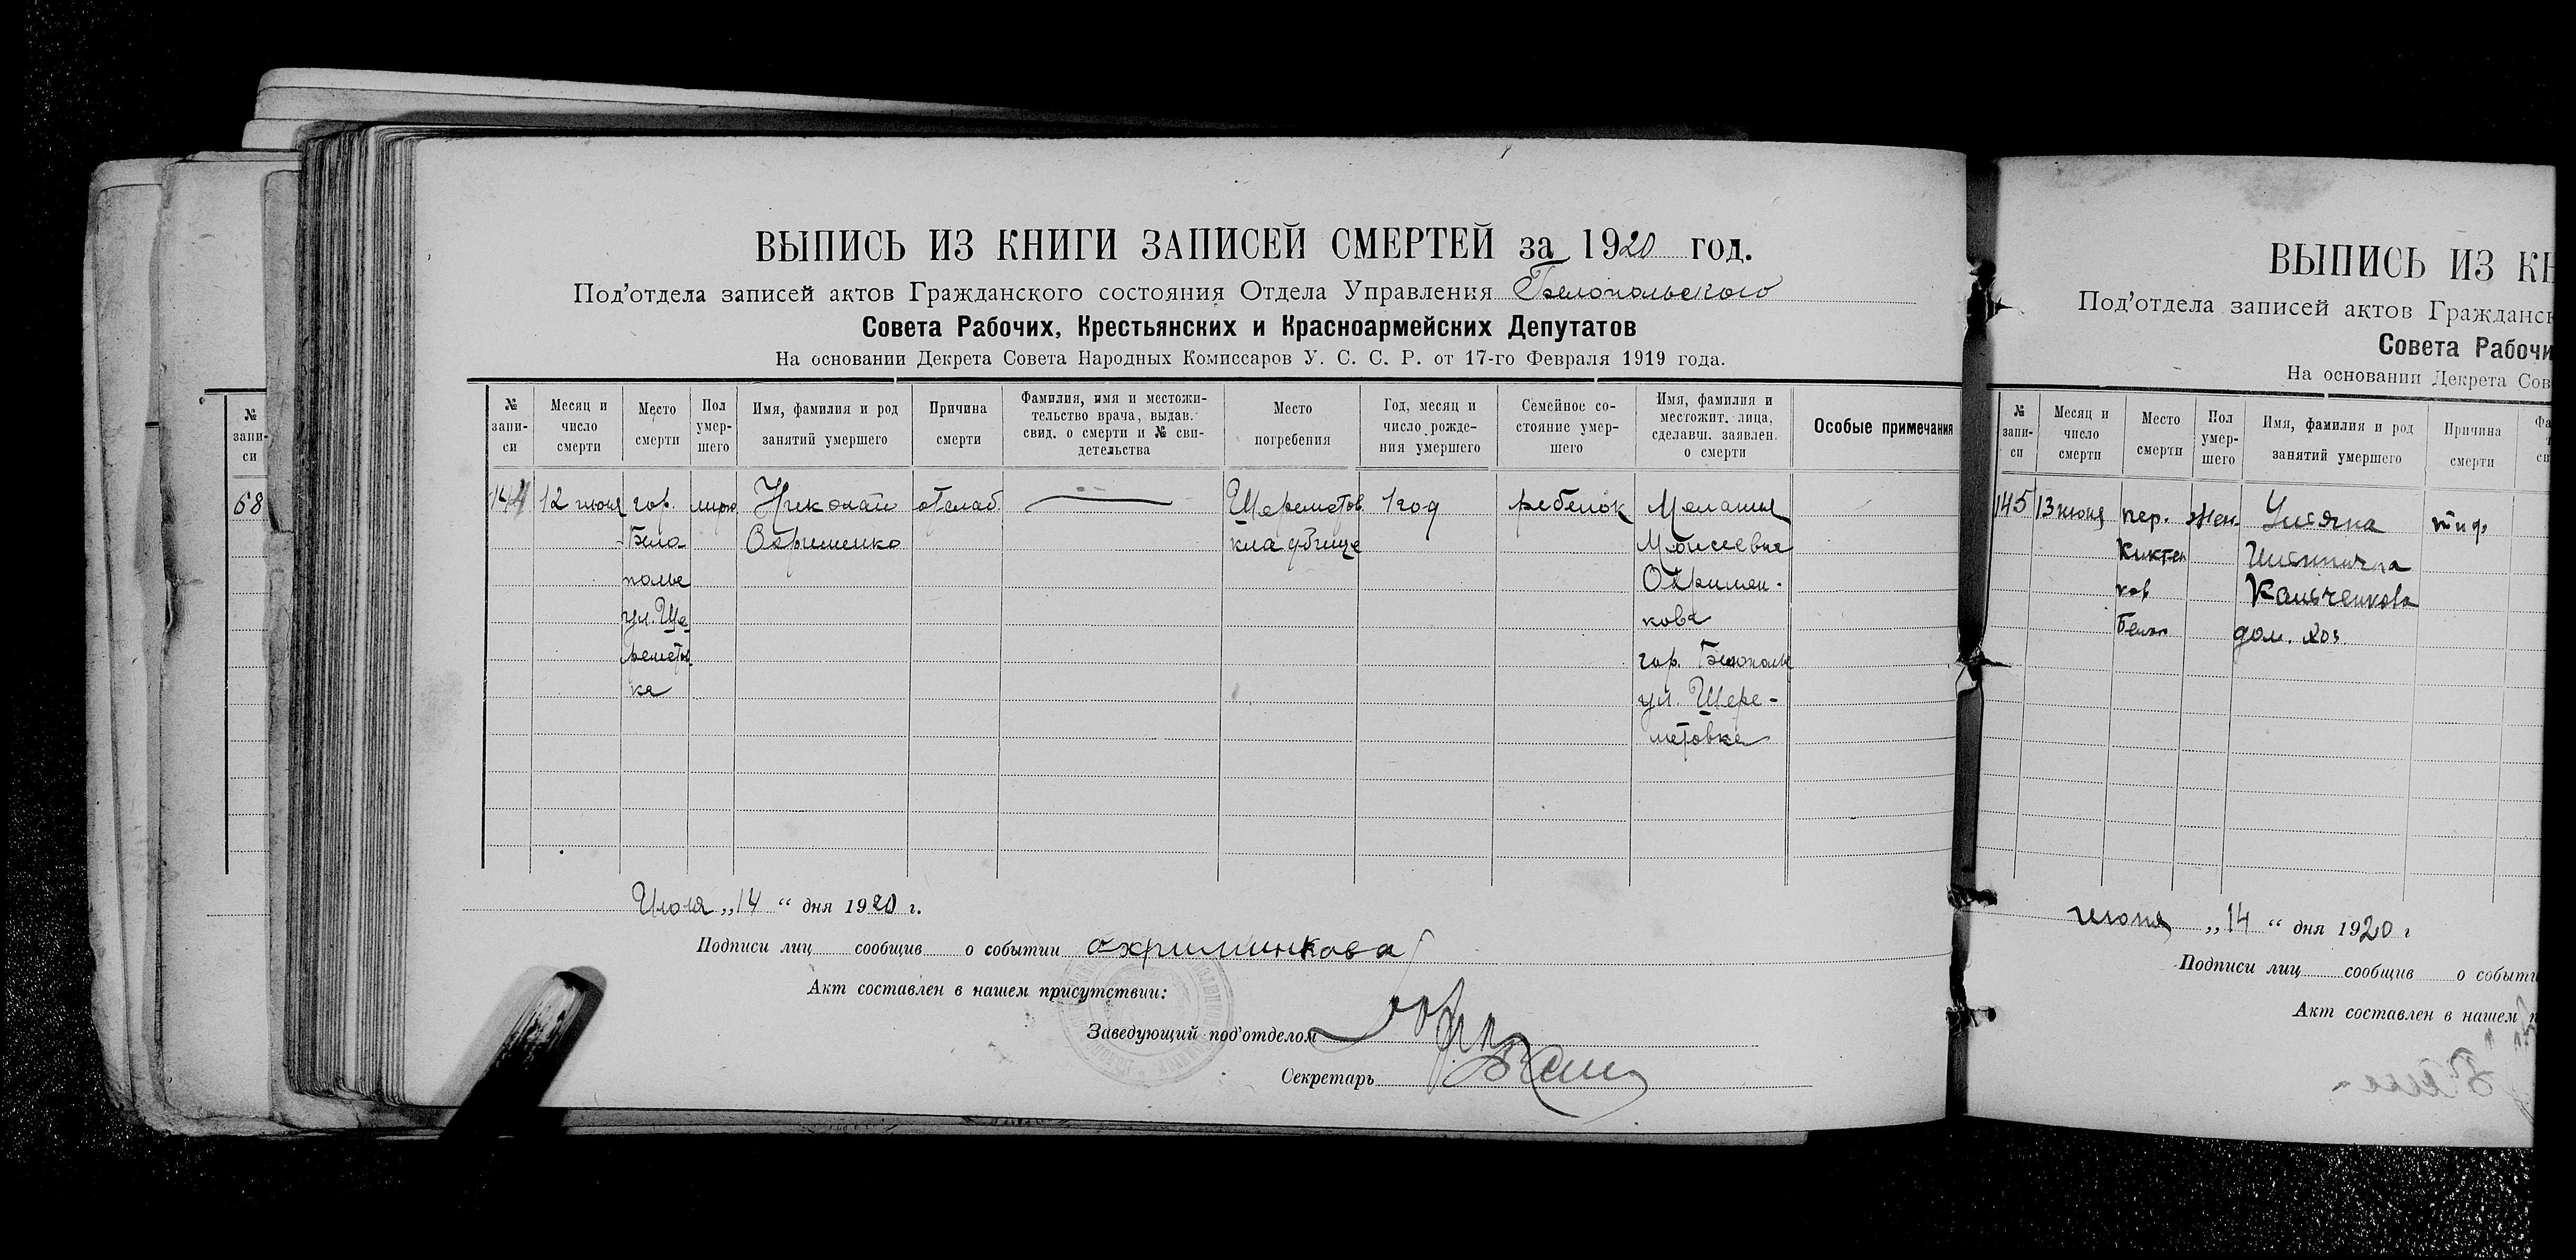 ВЫПИСЬ ИЗ КНИГИ ЗАПИСЕЙ СМЕРТЕЙ за 1920 год.
Под'отдела записей актов Гражданского состояния Отдела Управления Белопольского
Совета Рабочих, Крестьянских и Красноармейских Депутатов
На основании Декрета Совета Народных Комиссаров У. С. С. Р. от 17-го Февраля 1919 года.
№ запи- си
Месяц и число смерти
Место смерти
Пол умер- шего
Имя, фамилия и род занятий умершего
Причина смерти
Фамилия, имя и местожи- тельство врача, выдав. свид. о смерти и № сви- детельства
Место погребения
Год, месяц и число рожде- ния умершего
Семейное со- стояние умер- шего
Имя, фамилия и местожит. лица, сделавш. заявлен. о смерти
Особые примечания
144 12 июня гор. Николай ослаб. Шереметов 1 год ребенок Мелания
Бело кладбище Моисеевна
полье Охримен-
ул. Ше кова
реметов гор. Белополье
ка ул. Шере-
метовка
Июля „14“ дня 1920 г.
Подписи лиц сообщив о событии охриминкова
Акт составлен в нашем присутствии:
Заведующий под'отделом
Секретарь
№ запи- си
68
ВЫПИСЬ ИЗ КН
Под'отдела записей актов Гражданск
Совета Рабочи
На основании Декрета Сов
№ запи- си
Месяц и число смерти
Место смерти
Пол умер- шего
Имя, фамилия и род занятий умершего
Причина смерти
145 13 июня пер. жен. Ульяна тиф.
Киктен
ков
Белоп дом. хоз.
июня „14“ дня 1920 г
Подписи лиц сообщив о событи
Акт составлен в нашем п